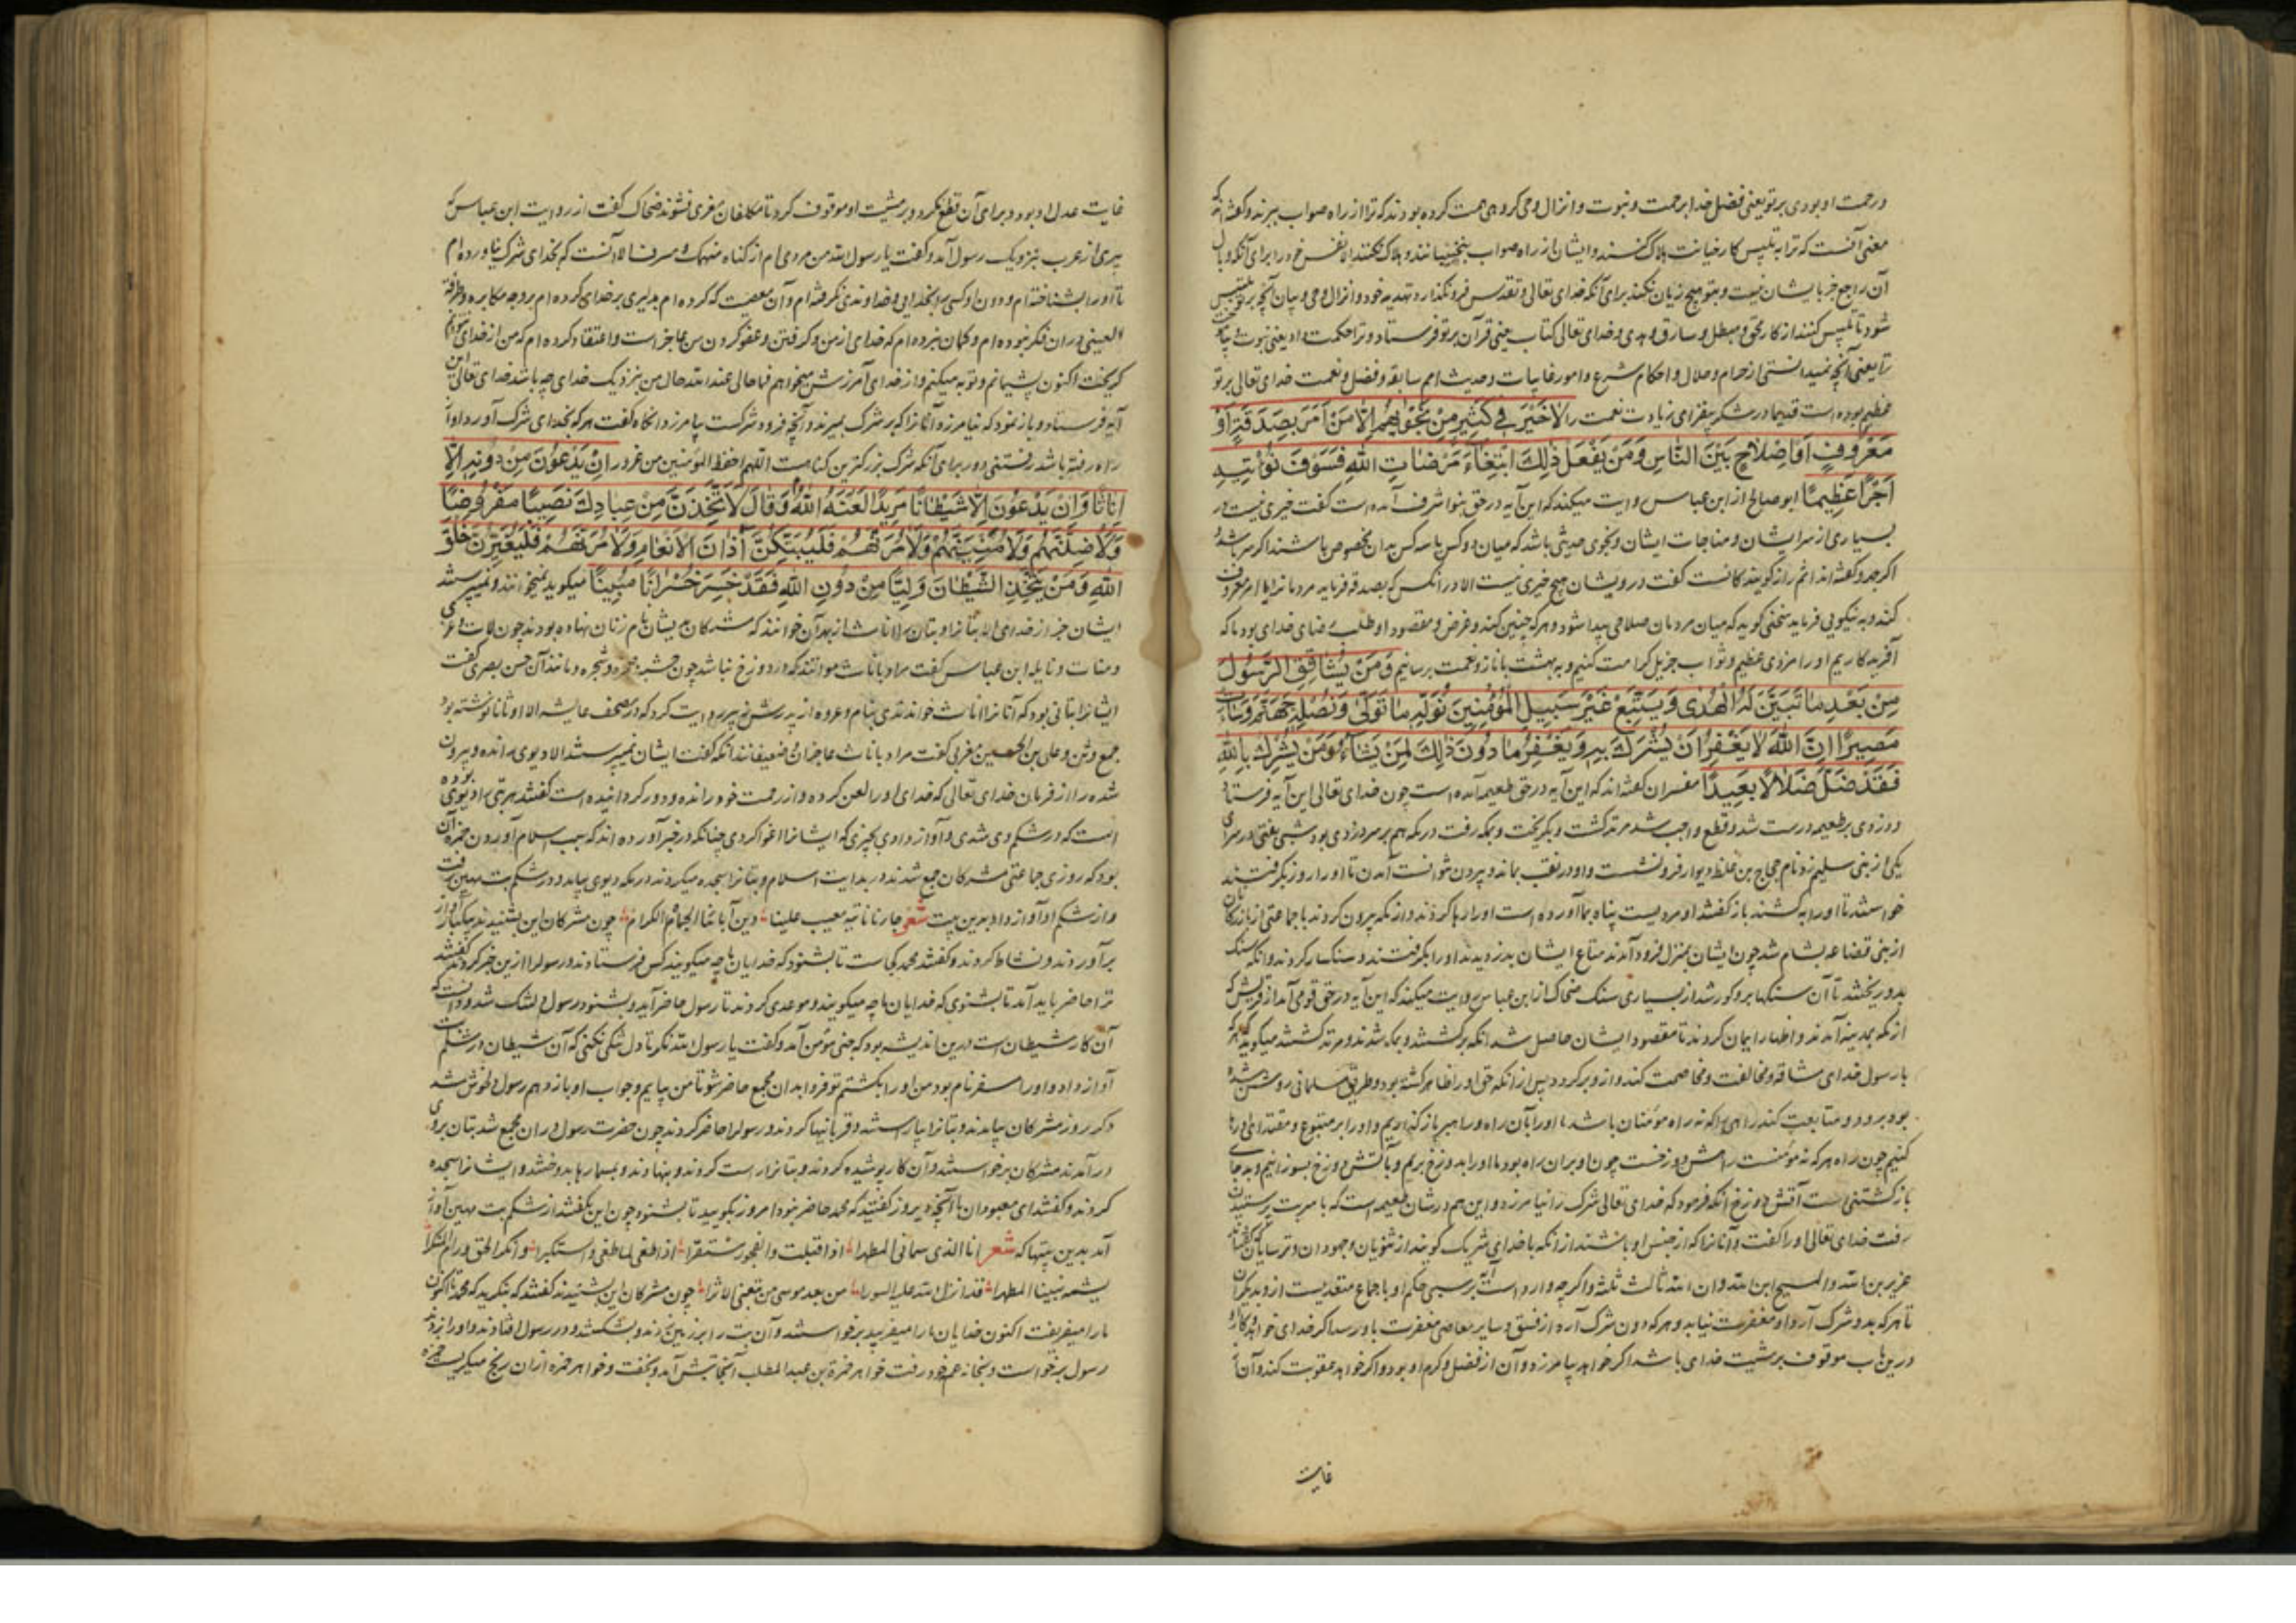 در رحمت او بودی بر تو یعنی فضل خدا برحمت و نبوت و انزال وحی گروهی همت کرده بودند که ترا از راه صواب ببرند و گفته‌اند که
معنی آنست که ترا به تلبیس کار خیانت هلاک کنند و ایشان از راه صواب و هلاک نکنند الا نفس خود را برای آنکه وبال
آن راجع جز بایشان نیست و بتو هیچ زیان نکنند برای آنکه خدای تعالی و تقدس فرو نگذارد و انزال وحی و بیان آنچه بر تو تلبیس
شود تا تلبیس کنند از کار محق و مبطل و سارق و خدای تعالی کتاب یعنی قرآن بر تو فرستاد و ترا حکمت داد یعنی نبوت
ترا یعنی آنچه نمیدانستی از حرام و حلال و احکام شرع و امور غایبات و حدیث امم سابقه و فضل و نعمت خدای تعالی بر تو
عظیم بوده است زیادت نعمت را لَا خَيْرَ فِي كَثِيرٍ مِنْ نَجْوٰيهُمْ اِلَّا مَنْ اَمَرَ بِصَدَقَةٍ اَوْ
مَعْرُوفٍ اَوْ اِصْلَاحٍ بَيْنَ النَّاسِ وَمَنْ يَفْعَلْ ذٰلِكَ ابْتِغَاءَ مَرْضَاتِ اللّٰهِ فَسَوْفَ نُؤْتِيهِ
اَجْرًا عَظِيمًا ابو صالح از ابن عباس روایت میکند که این آیه در حق بنو اشرف آمده است گفت خیری نیست در
بسیاری از سر ایشان و مناجات ایشان و نجوی حدیثی باشد که میان دو کس یا سه کس بدان مخصوص باشند اگر سر باشد و
اگر جهر و گفته‌اند گفت در ایشان هیچ خیری نیست الا در آنکس که بصدقه فرماید مردمانرا یا امر معروف
کند و به نیکویی فرماید سخنی گوید که میان مردمان صلاحی پیدا شود و هرکه چنین کند و غرض و مقصود او طلب رضای خدای بود ما که
آفریدگاریم او را مزدی عظیم و ثواب جزیل کرامت کنیم و به بهشت با ناز و نعمت برسانیم وَمَنْ يُشَاقِقِ الرَّسُولَ
مِنْ بَعْدِ مَا تَبَيَّنَ لَهُ الْهُدٰى وَيَتَّبِعْ غَيْرَ سَبِيلِ الْمُؤْمِنِينَ نُوَلِّهِ مَا تَوَلّٰى وَنُصْلِهِ جَهَنَّمَ وَسَاءَتْ
مَصِيرًا اِنَّ اللّٰهَ لَا يَغْفِرُ اَنْ يُشْرَكَ بِهِ وَيَغْفِرُ مَا دُونَ ذٰلِكَ لِمَنْ يَشَاءُ وَمَنْ يُشْرِكْ بِاللّٰهِ
فَقَدْ ضَلَّ ضَلَالًا بَعِيدًا مفسران گفته‌اند که این آیه در حق طعیمه آمده است چون خدای تعالی این آیه فرستاد
و دزدی بر طعیمه درست شد و قطع واجب شد مرتد گشت و بگریخت و بمکه رفت در مکه هم بر سر دزدی بود شبی نقبی در سرای
یکی از بنی سلیم زد نام حجاج بن علاط دیوار فرو نشست و او در نقب بماند و بیرون نتوانست آمدن تا او را روز بگرفتند
خواستند تا او را بکشند باز گفتند او مردیست پناه بما آورده است او را رها کردند و از مکه بیرون کردند با جماعتی از بازرگانان
از بنی قضاعه بشام شد چون ایشان بمنزل فرود آمدند متاع ایشان بدزدید او را بگرفتند و سنگسار کردند و آنکه سنگ
بدو ریختند تا آن سنگها برو گور شد از بسیاری سنگ ضحاک از ابن عباس روایت میکند که این آیه در حق قومی آمد از قریش که
از مکه بمدینه آمدند و اظهار ایمان کردند تا مقصود ایشان حاصل شد آنکه برگشتند و بمکه شدند و مرتد گشتند میگوید هر که
با رسول خدای مشاقه و مخالفت و مخاصمت کند و ازو برگردد پس از آنکه حق او را ظاهر گشته بود و طریق مسلمانی روشن شده
بود برود و متابعت کند راهی را که نه راه مومنان باشد ما او را بآن راه و راهبر باز گذاریم و او را بر متبوع و مقتدای او رها
کنیم چون راه هرکه نه مومنست راهش دوزخست چون او بر آن راه بود ما او را بدوزخ بریم و بآتش دوزخ بسوزانیم و بد جای
بازگشتنی است آتش دوزخ آنکه فرمود که خدای تعالی شرک را نیامرزد و این هم در شان طعیمه است که با سر بت پرستیدن
رفت خدای تعالی او را گفت و آنانرا که از جنس او باشند از آنکه با خدای شریک گویند از ثنویان و جهودان و ترسایان که گفتند
عزیر ابن الله والمسیح ابن الله و ان الله ثالث ثلثه و اگرچه وارد است بر سببی حکم او با جماع متعدیست ازو بدیگران
تا هرکه بدو شرک آرد او مغفرت نیابد و هرکه دون شرک آرد از فسق و سایر معاصی مغفرت باو رسد اگر خدای خواهد و کار او
درین باب موقوف بر مشیت خدای باشد اگر خواهد بیامرزد و آن از فضل و کرم او بود و اگر خواهد عقوبت کند و آن از
غایت
غایت عدل او بود و برای آن قطع نکرد و بر مشیت او موقوف کرد تا مکلفان مغری نشوند ضحاک گفت از روایت ابن عباس که
پیری از عرب بنزدیک رسول آمد و گفت یا رسول الله من مردی ام از گناه منهمک و مسرف الا آنست که بخدای شرک نیاورده ام
تا او را بشناخته ام و دون او کسی را بخدایی و خداوندی نگرفته ام و آن معصیت که کرده ام بدلیری بر خدای نکرده ام بر وجه مکابره و طرفة
العینی در آن فکر نبوده ام و گمان نبرده ام که خدای از من و گرفتن و عفو کردن من عاجز است و اعتقاد کرده ام که من از خدای نتوانم
گریخت اکنون پشیمانم و توبه میکنم و از خدای آمرزش میخواهم فما حالی عند الله حال من بنزدیک خدای چه باشد خدای تعالی این
آیه فرستاد و باز نمود که نیامرزد آنانرا که بر شرک بمیرند و آنچه فرود شرکست بیامرزد آنگاه گفت هرکه بخدای شرک آورد او از
راه رفته باشد رفتنی دور برای آنکه شرک بزرگترین گناهست اللهم احفظ المومنین من غرور اِنْ يَدْعُونَ مِنْ دُونِهِ اِلَّا
اِنَاثًا وَاِنْ يَدْعُونَ اِلَّا شَيْطَانًا مَرِيدًا لَعَنَهُ اللّٰهُ وَقَالَ لَاَتَّخِذَنَّ مِنْ عِبَادِكَ نَصِيبًا مَفْرُوضًا
وَلَاُضِلَّنَّهُمْ وَلَاُمَنِّيَنَّهُمْ وَلَاٰمُرَنَّهُمْ فَلَيُبَتِّكُنَّ اٰذَانَ الْاَنْعَامِ وَلَاٰمُرَنَّهُمْ فَلَيُغَيِّرُنَّ خَلْقَ
اللّٰهِ وَمَنْ يَتَّخِذِ الشَّيْطَانَ وَلِيًّا مِنْ دُونِ اللّٰهِ فَقَدْ خَسِرَ خُسْرَانًا مُبِينًا میگوید نمیخوانند و نمیپرستند
ایشان جز از خدای الا بتانرا و بتان را اناث از بهر آن خواند که مشرکان بر ایشان نام زنان نهاده بودند چون لات و عزی
و منات و نایله ابن عباس گفت مراد باناث مواتند که درو روح نباشد چون خشبه و حجره و شجره و مانند آن حسن بصری گفت
ایشانرا بتانی بود که آنانرا اناث خواندندی بنام و عروه از پدرش زبیر روایت کرد که در مصحف عایشه الا اوثانا نوشته بود
جمع وثن و علی بن الحسین مغربی گفت مراد باناث عاجزان و ضعیفانند آنکه گفت ایشان نمیپرستند الا دیوی رانده و بیرون
شده را از فرمان خدای تعالی که خدای او را لعن کرده و از رحمت خود رانده و دور گردانیده است گفتند هر بتی را دیوی بوده
است که در شکم وی شدی و آواز دادی بچیزی که ایشانرا اغوا کردی چنانکه در خبر آورده اند که سبب اسلام آوردن حمزه آن
بود که روزی جماعتی مشرکان جمع شدند در بدایت اسلام و بتانرا سجده میکردند در مکه دیوی بیامد و در شکم بت مهین رفت
و از شکم او آواز داد بدین بیت شعر دین آبائنا الکرام چون مشرکان این بشنیدند بیکبار آواز
برآوردند و نشاط کردند و گفتند محمد کجاست تا بشنود که خدایان ما چه میگویند کس فرستادند و رسول را ازین خبر کردند گفتند
ترا حاضر باید آمد تا بشنوی که خدایان ما چه میگویند و موعدی کردند تا رسول حاضر آید و بشنود رسول دلتنگ شد و دانست که
آن کار شیطان است درین اندیشه بود که جنی مومن آمد و گفت یا رسول الله نگر تا دل تنگی نکنی که آن شیطان در شکم بت
آواز داد و او را مسفر نام بود من او را بکشتم تو فردا بدان مجمع حاضر شو تا من بیایم و جواب او باز دهم رسول دلخوش شد
دگر روز مشرکان بیامدند و بتانرا بیاراستند و قربانیها کردند و رسول را حاضر کردند چون حضرت رسول در آن مجمع شد بتان بروی
درآمدند مشرکان برخواستند و آن کار پوشیده کردند و بتانرا راست کردند و بنهادند و بمسمارها بدوختند و ایشانرا سجده
کردند و گفتند ای معبودان ما آنچه دیروز گفتید که محمد حاضر نبود امروز بگویید تا بشنود چون این بگفتند از شکم بت مهین آواز
آمد بدین بیتها که شعر انا الذی سمانی المطهرا اذا طغی لما طغی و استکبرا و انکر الحق و رام المنکرا
بشتمه نبینا المطهرا قد انزل الله علیه السورا من بعد موسی چون مشرکان این بشنیدند گفتند که بنگرید که محمد تا اکنون
ما را میفریفت اکنون خدایان ما را میفریبد برخواستند و آن بت را بر زمین زدند و بشکستند و در رسول افتادند و او را بزدند
رسول برخواست و بخانه عم خود رفت خواهر حمزة بن عبد المطلب آنجا پیش آمد و بخفت و خواهر حمزه از آن رنج میگریست حمزه